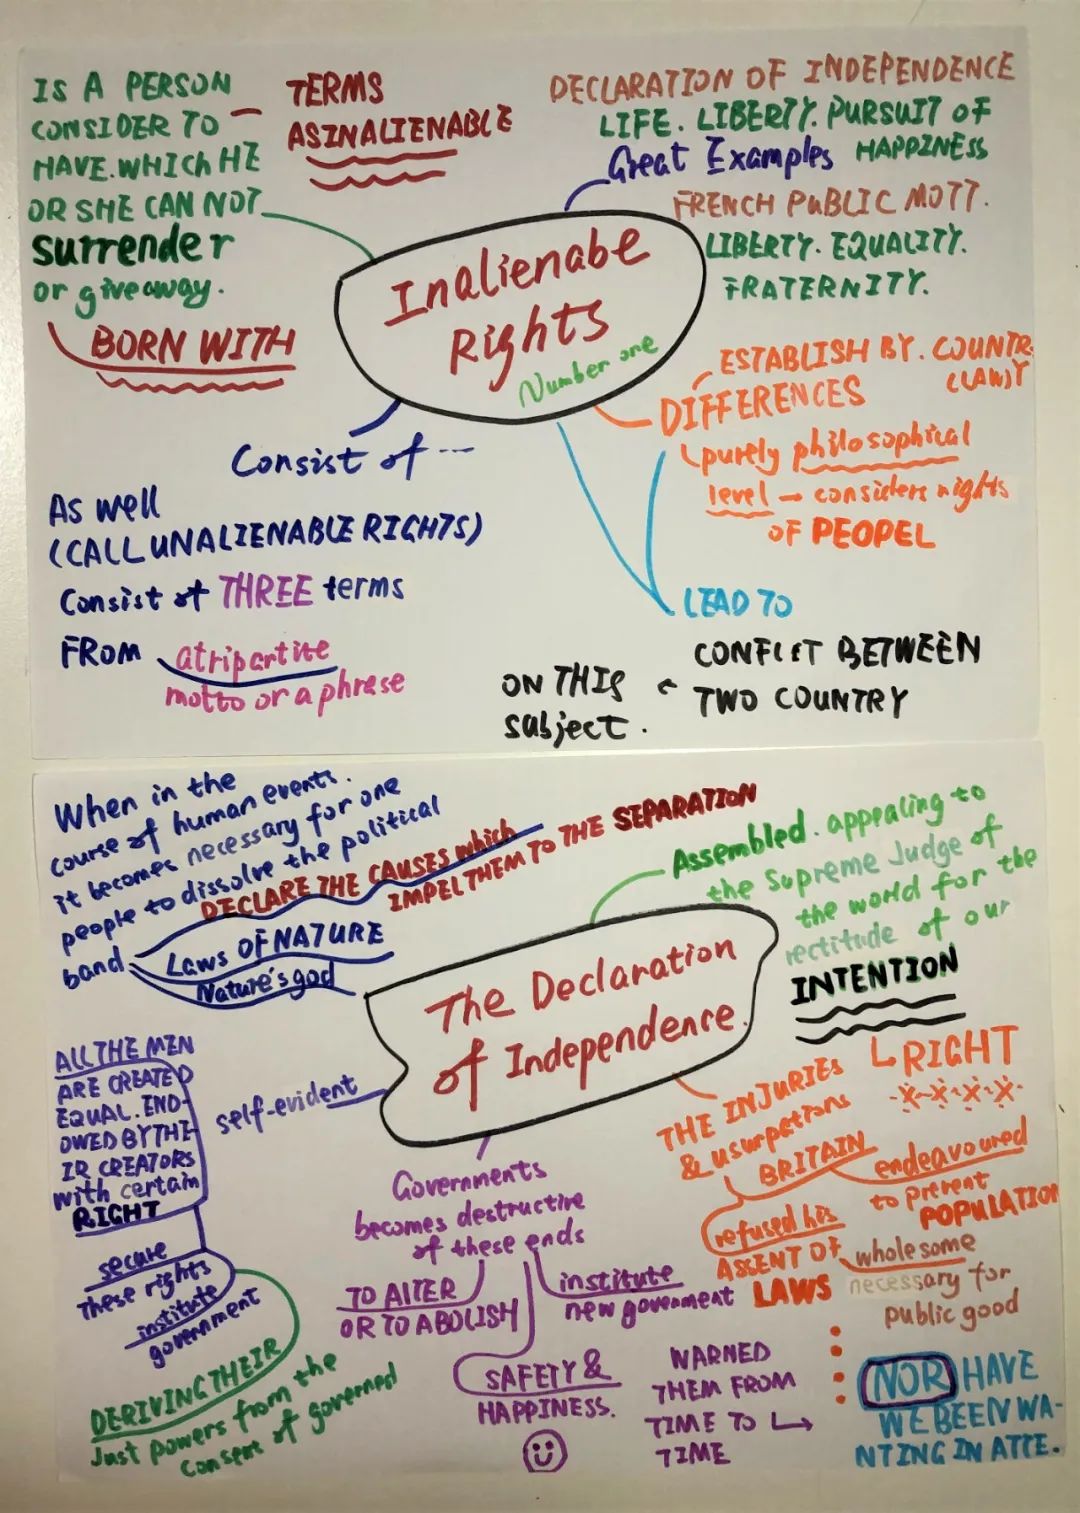 IS A PERSON
CONSIDER TO
HAVE. WHICH HE
OR SHE CAN NOT
surrender
or give away.
BORN WITH
TERMS
ASINALIENABLE
DECLARATION OF INDEPENDENCE
LIFE. LIBERTY. PURSUIT OF
HAPPINESS
Great Examples
FRENCH PUBLIC MOTT.
LIBERTY. EQUALITY.
FRATERNITY.
Inalienabe
Rights
Number one
ESTABLISH BY. COUNTR
(LAW)Y
DIFFERENCES
purely philosophical
level → considers rights
OF PEOPEL
Consist of ---
As well
(CALL UNALIENABLE RIGHTS)
Consist of THREE terms
FROM atripartite
motto or a phrase
LEAD TO
CONFLIT BETWEEN
TWO COUNTRY
ON THIS
subject.
When in the
course of human events.
it becomes necessary for one
people to dissolve the political
band
DECLARE THE CAUSES which
IMPEL THEM TO THE SEPARATION
Laws OF NATURE
Nature's god
Assembled. appealing to
the Supreme Judge of
the world for the
rectitude of our
INTENTION
The Declaration
of Independence.
ALL THE MEN
ARE CREATED
EQUAL. END-
OWED BY THE-
IR CREATORS
with certain
RIGHT
self-evident
secure
these rights
institute
government
DERIVING THEIR
Just powers from the
consent of governed
Governments
becomes destructive
of these ends
TO ALTER
OR TO ABOLISH
institute
new goverment
SAFETY &
HAPPINESS.
RIGHT
THE INJURIES
& usurpations
BRITAIN
endeavoured
to prevent
POPULATION
refused his
ASSENT OF
LAWS
wholesome
necessary for
public good
WARNED
THEM FROM
TIME TO
TIME
NOR HAVE
WE BEEN WA-
NTING IN ATTE.